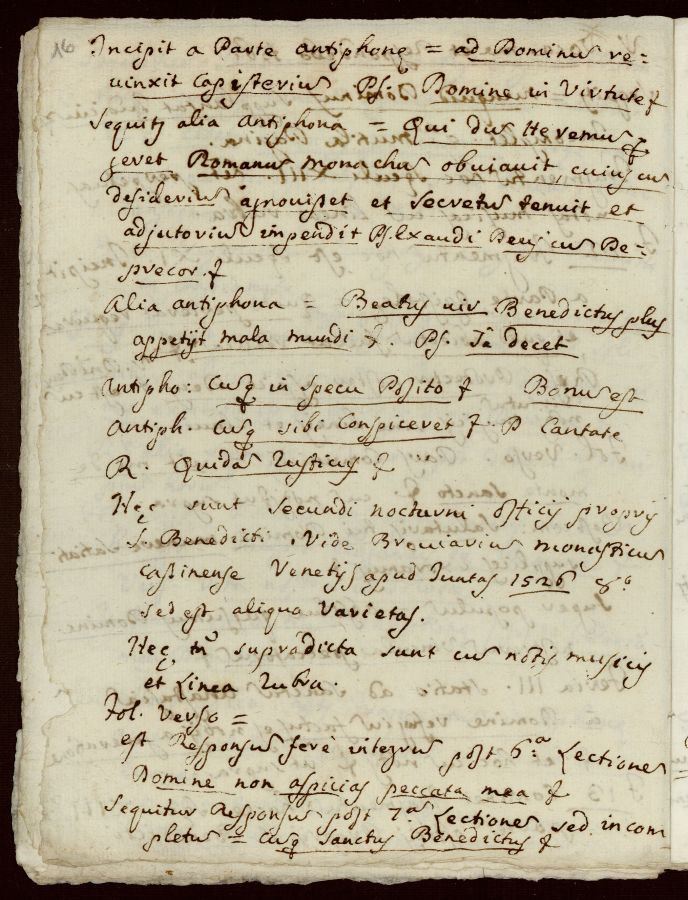 16
Incipit a Parte antiphonę = ad Dominum re=
uinxit Capisterium Ps. Domine in Virtute &
Sequitz alia antiphona = Qui dum Heremum
geret Romanus monachus obuiauit, cuius cum
desiderium agnouisset et secretum tenuit et
adjutorium impendit Ps. Exaudi Deus cum De=
precor. &
Alia antiphona = Beatus uir Benedictus plus
appetijt mala mundi &. Ps. Te decet
Antipho: Cumq in specu Posito & Bonum est
Antiph. Cumq sibi Conspiceret &. P Cantate
R. Quidam rusticus &
Hęc sunt secundi nocturni officij proprij
S. Benedicti. Vide Breuiarium monasticum
casinense Venetijs apud Juntas 1526 8.o
sed est aliqua varietas.
Hęc tn supradicta sunt cum notis musicis
et Linea rubra.
fol. Verso =
est Responsum ferè integrum post 6.a Lectionem
Domine non aspicias peccata mea &
Sequitur Responsum post 7.am Lectionem sed incom
pletum = Cumq Sanctus Benedictus &